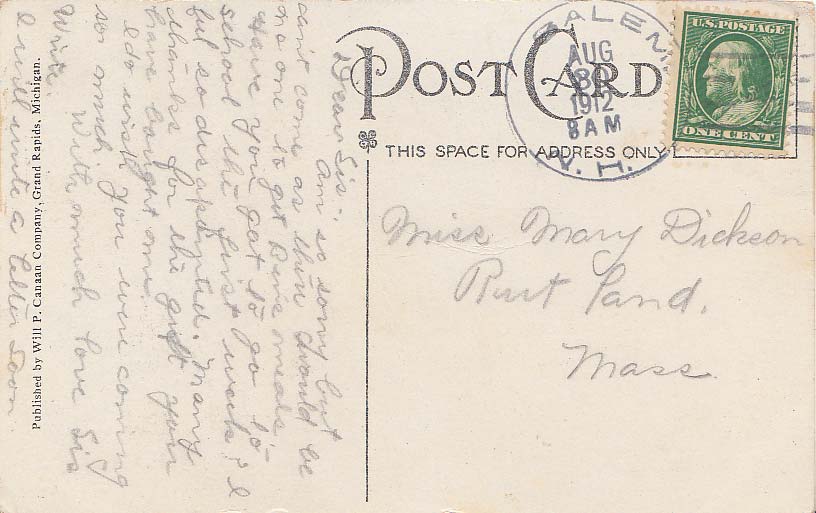 POST CARD
THIS SPACE FOR ADDRESS ONLY
SALEM
AUG
30
1912
8 AM
N. H.
U.S. POSTAGE
ONE CENT
Miss Mary Dickson
Rutland,
Mass.
Dear Sis:-
Am so sorry but
can't come as there would be
no one to get Ben's meals.
Have you got to go to
school the first week? I
feel so disapointed. Many
thanks for the gift you
have bought me.
I do wish you were coming
so much
With much love Sis
Write.
I will write a letter soon
Published by Will P. Canaan Company, Grand Rapids, Michigan.